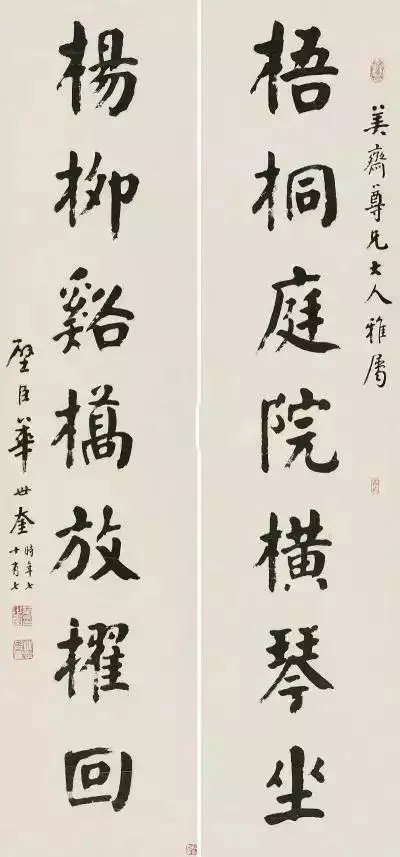 美齋尊兄大人雅屬
梧桐庭院橫琴坐
楊柳谿橋放櫂回
璧臣華世奎時年七
十有七